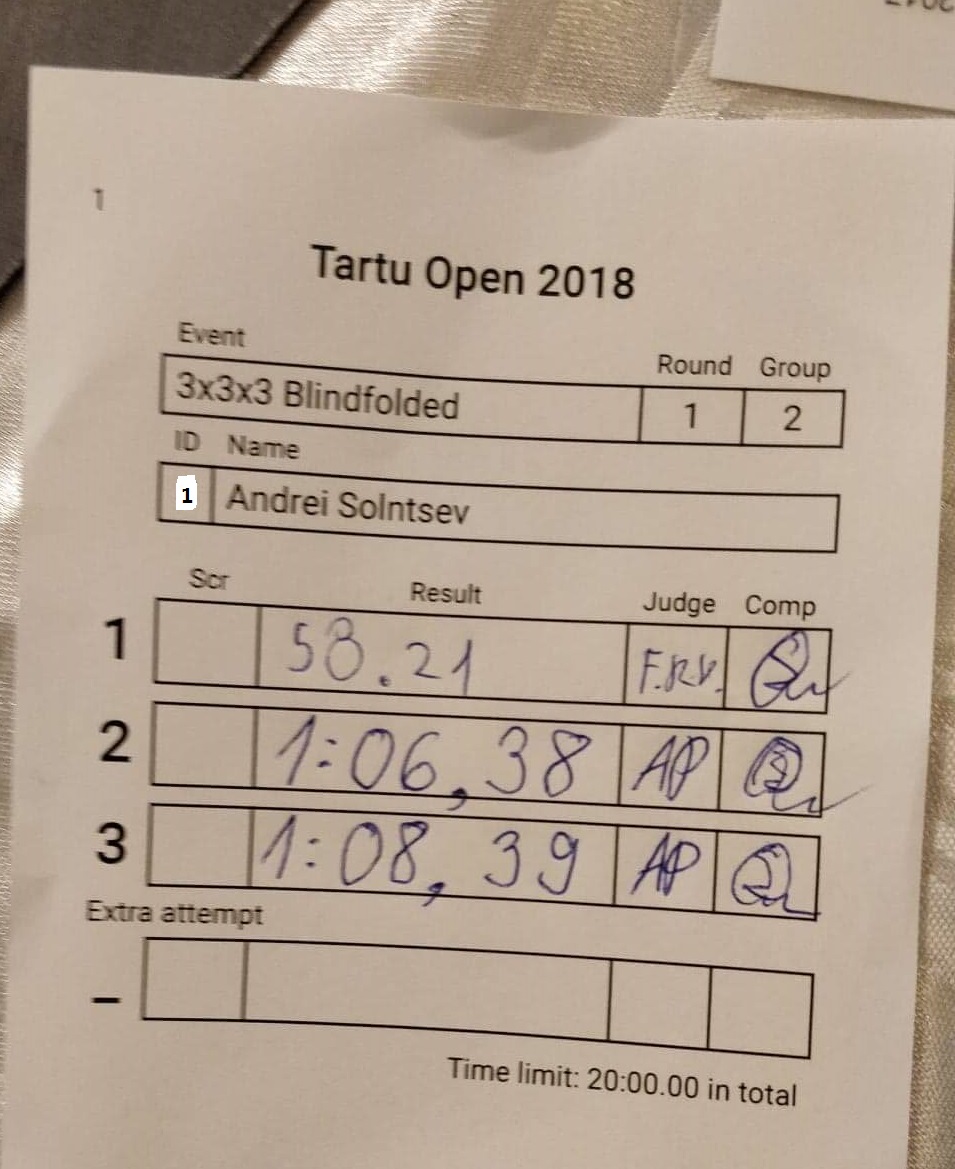 1
Tartu Open 2018
Event Round Group
3x3x3 Blindfolded 1 2
ID Name
1 Andrei Solntsev
Scr Result Judge Comp
1 58.21 F.R.V.
2 1:06,38 AP
3 1:08,39 AP
Extra attempt
–
Time limit: 20:00.00 in total